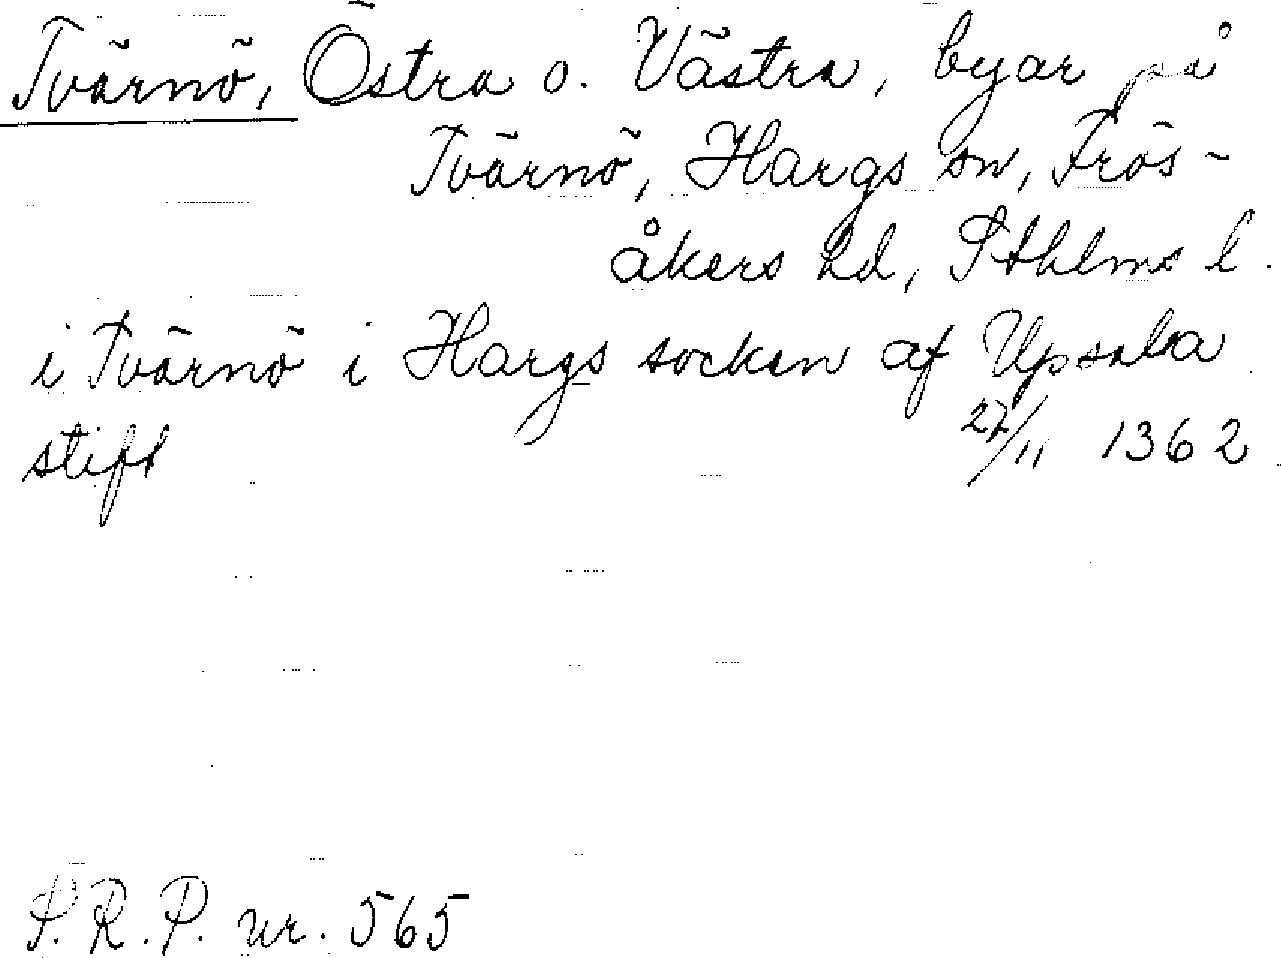 Tvärnö, Östra o. Västra, byar på
Tvärnö, Hargs sn, Frös-
åkers hd, Sthlms l.
i Tvärnö i Hargs sockan af Upsala
stift 27/11 1362
S.R.P. nr. 565